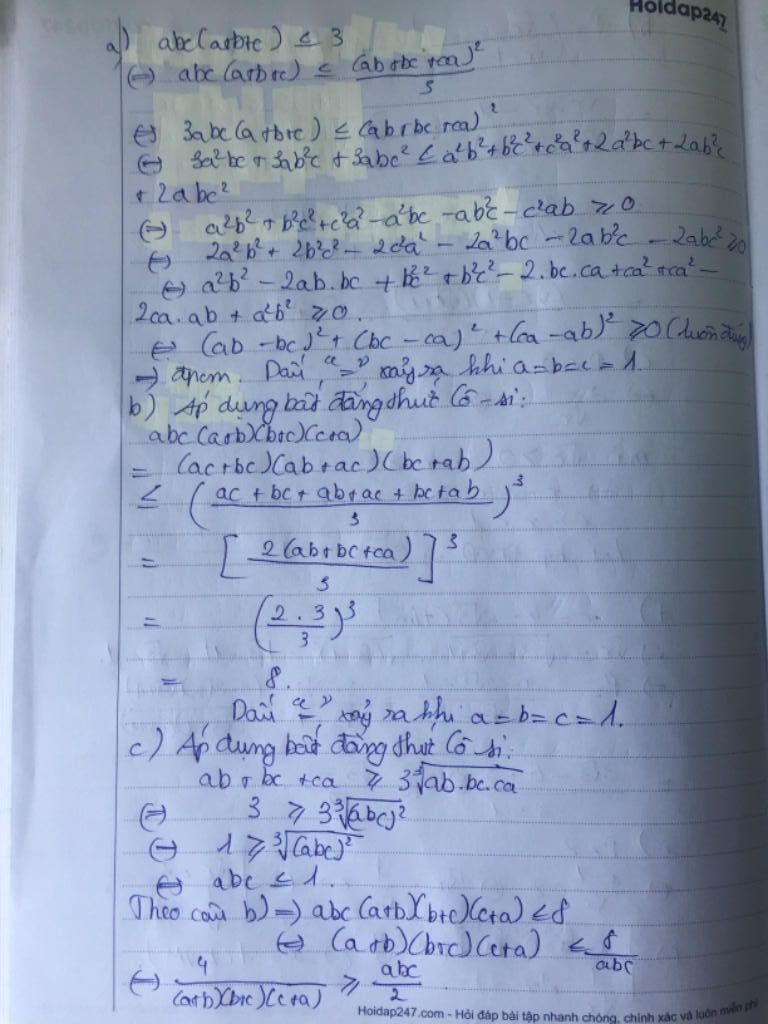 Hoidap247
a) abc(a+b+c) ≤ 3
⇔ abc(a+b+c) ≤ (ab+bc+ca)²/3
⇔ 3abc(a+b+c) ≤ (ab+bc+ca)²
⇔ 3a²bc + 3ab²c + 3abc² ≤ a²b²+b²c²+c²a²+2a²bc+2ab²c
+ 2abc²
⇔ a²b² + b²c² + c²a² - a²bc - ab²c - c²ab ≥ 0
⇔ 2a²b² + 2b²c² - 2c²a² - 2a²bc - 2ab²c - 2abc² ≥ 0
⇔ a²b² - 2ab.bc + b²c² + b²c² - 2.bc.ca + ca² + ca² -
2ca.ab + a²b² ≥ 0.
⇔ (ab - bc)² + (bc - ca)² + (ca - ab)² ≥ 0 (luôn đúng)
⇒ đpcm. Dấu "=" xảy ra khi a=b=c=1.
b) Áp dụng bất đẳng thức Cô-si:
abc(a+b)(b+c)(c+a)
= (ac+bc)(ab+ac)(bc+ab)
≤ ((ac+bc+ab+ac+bc+ab)/3)³
= [2(ab+bc+ca)/3]³
= (2.3/3)³
= 8.
Dấu "=" xảy ra khi a=b=c=1.
c) Áp dụng bất đẳng thức Cô-si:
ab + bc + ca ≥ 3∛(ab.bc.ca)
⇔ 3 ≥ 3∛(abc)²
⇔ 1 ≥ ∛(abc)²
⇔ abc ≤ 1.
Theo câu b) ⇒ abc(a+b)(b+c)(c+a) ≤ 8
⇔ (a+b)(b+c)(c+a) ≤ 8/abc
⇔ 4/((a+b)(b+c)(c+a)) ≥ abc/2
Hoidap247.com - Hỏi đáp bài tập nhanh chóng, chính xác và luôn miễn phí